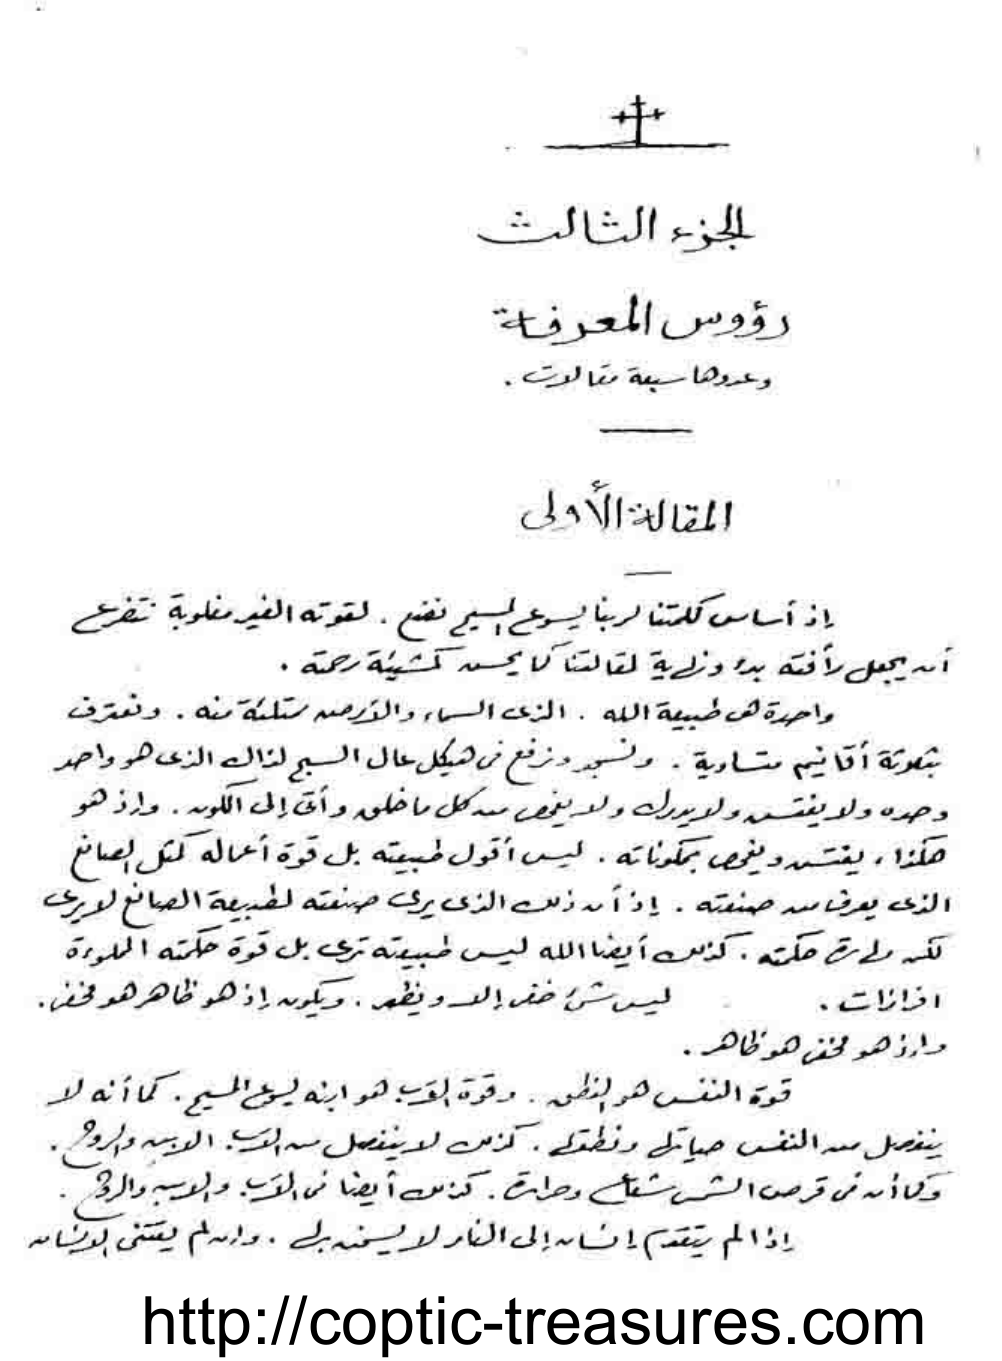 الجزء الثالث
رؤوس المعرفة
وعددها سبعة مقالات .
المقالة الأولى
إذ أساس كلمتنا لربنا يسوع المسيح نضع . لقوته الغير مغلوبة نتضرع
أن يجعل رأفته بدء ونهاية لمقالتنا كما يحسن كمشيئة رحمته .
واحدة هى طبيعة الله . الذى السماء والأرض ممتلئة منه . ونعترف
بثلاثة أقانيم متساوية . ونسجد ونرفع فى هيكل عال السبح لذاك الذى هو واحد
وحده ولا يفتش ولا يدرك ولا يفحص من كل ما خلق وأتى إلى الكون . وإذ هو
هكذا ، يفتش ويفحص بمكوناته . ليس أقول طبيعته بل قوة أعماله كمثل الصانع
الذى يعرف من صنعته . إذ أن ذلك الذى يرى صنعته لطبيعة الصانع لا يرى
لكن حكمته . كذلك أيضا الله ليس طبيعته ترى بل قوة حكمته المملوءة
افرازات . ليس شئ خفى إلا ويظهر . ويكون إذ هو ظاهر هو مخفى .
وإذ هو مخفى هو ظاهر .
قوة النفس هو النطق . وقوة الآب هو ابنه يسوع المسيح . كما أنه لا
ينفصل من النفس حياتها ونطقها . كذلك لا ينفصل من الآب الابن والروح .
وكما أن فى قرص الشمس شعاع وحرارة . كذلك أيضا فى الآب والابن والروح .
إذا لم يتقدم إنسان إلى النار لا يسخن بها . وإن لم يقتنى الإنسان
http://coptic-treasures.com